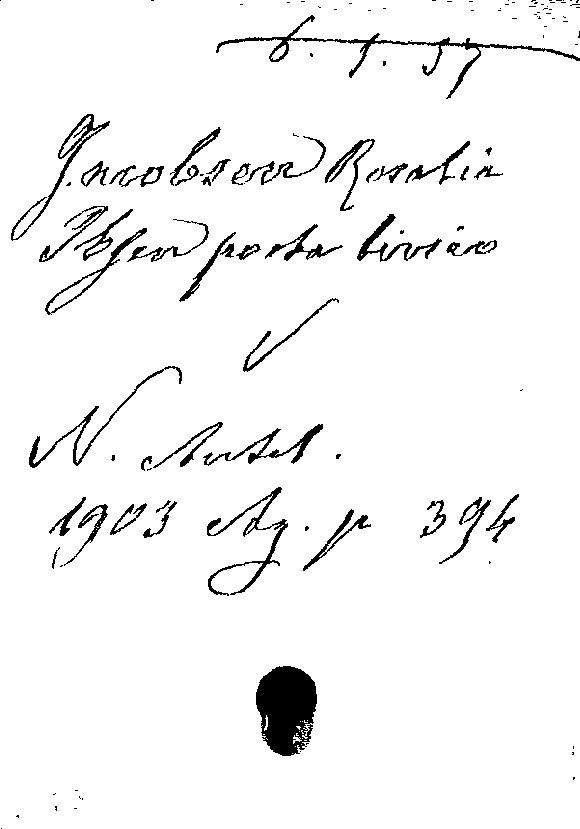 6. 1. 37
Jacobsen Rosalia
Ibsen poeta lirico
N. Antol.
1903 Ag. p 394